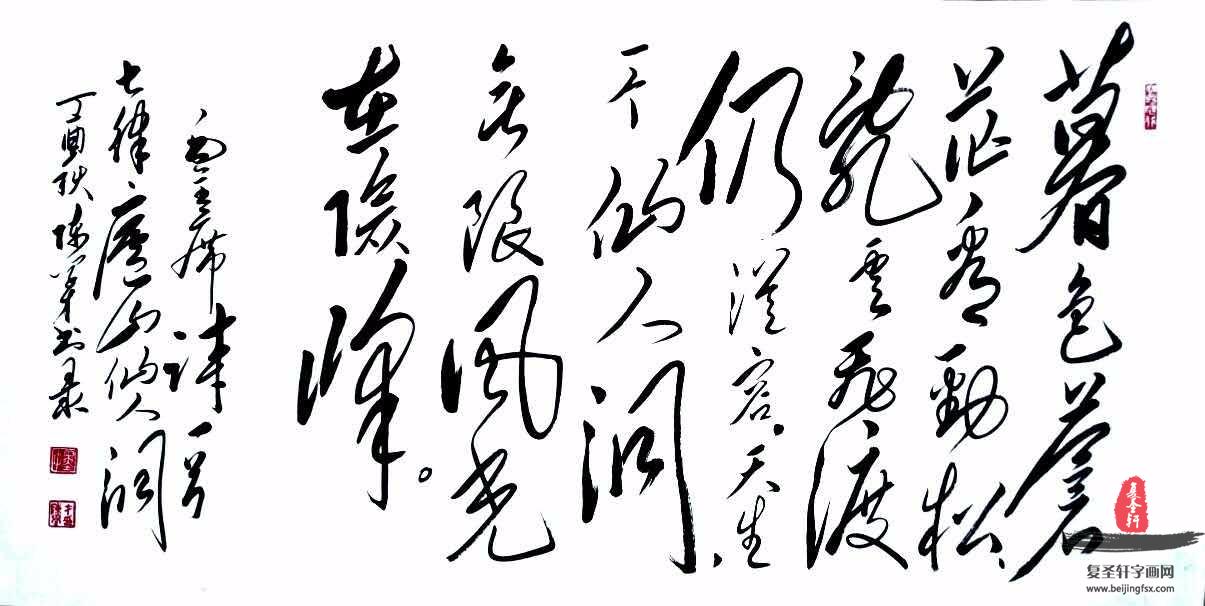 暮色苍
茫看劲松
乱云飞渡
仍从容天生
一个仙人洞
无限风光
在险峰。
毛主席诗一首
七律庐山仙人洞
丁酉秋陈军书录
复圣轩
复圣轩字画网
www.beijingfsx.com